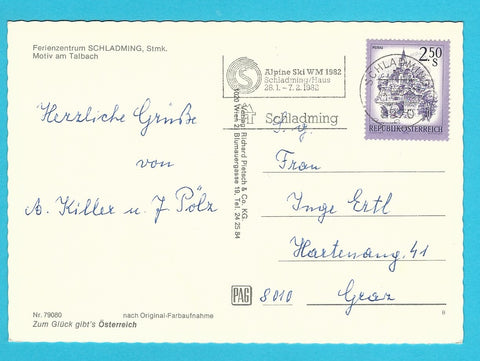 Ferienzentrum SCHLADMING, Stmk.
Motiv am Talbach
Herzliche Grüße
von
A. Killer u. J. Pölz
Nr. 79080
nach Original-Farbaufnahme
Zum Glück gibt's Österreich
Alpine Ski WM 1982
Schladming/Haus
28.1. - 7.2.1982
Schladming
Verlag Richard Pietsch & Co. KG.
1020 Wien 2, Blumauergasse 19, Tel. 24 25 84
PAG
SCHLADMING
2.50
S
REPUBLIK ÖSTERREICH
S. g.
Frau
Inge Ertl
Hartenaug. 41
8010 Graz